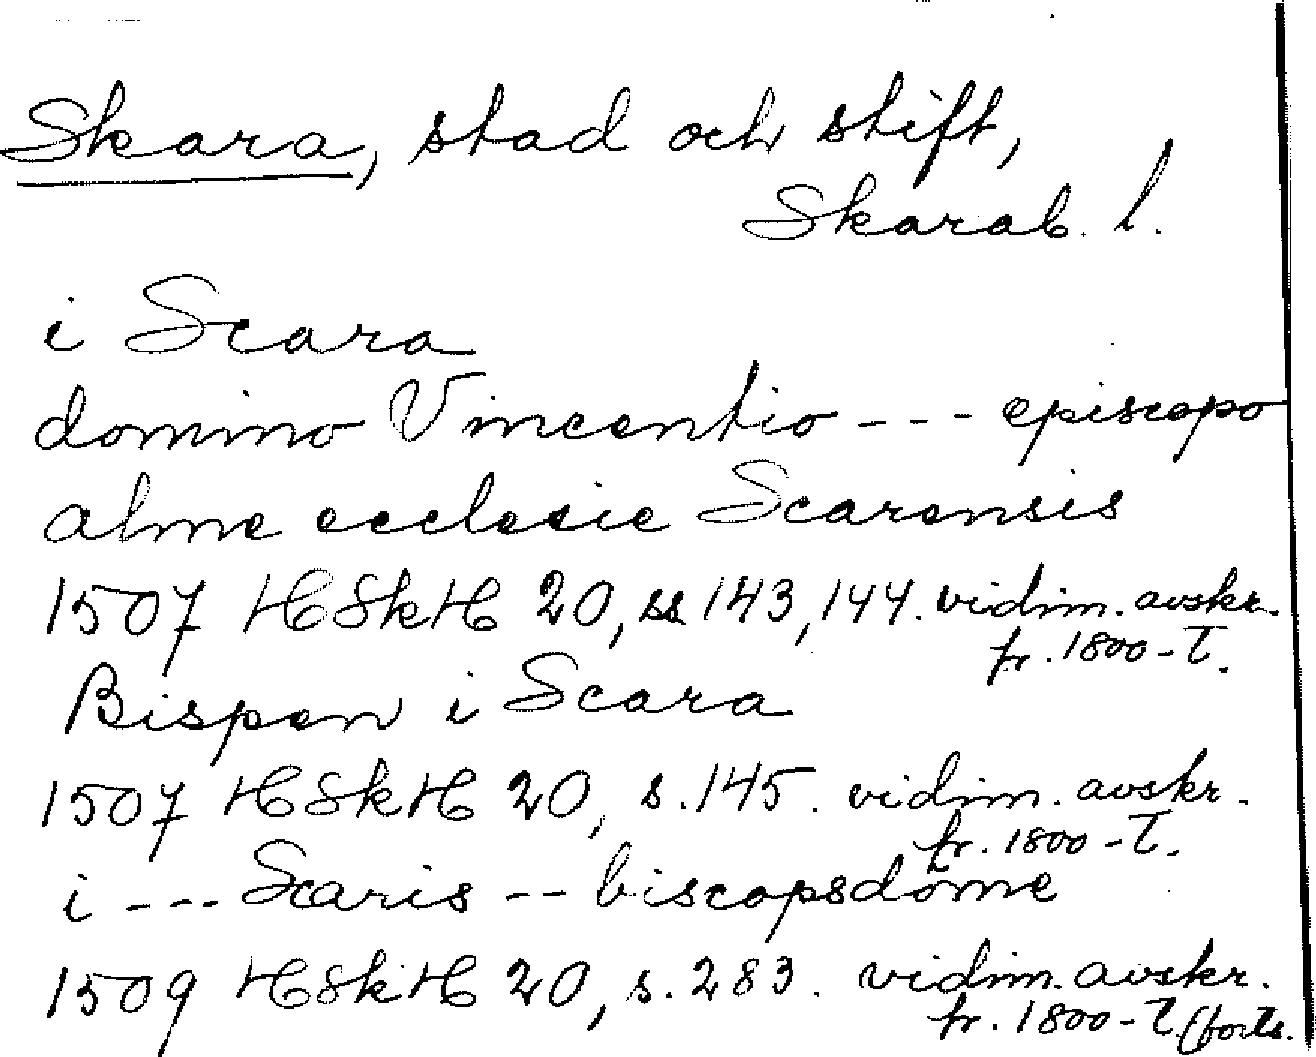 Skara, stad och stift,
Skarab. l.
i Scara
domino Vincentio --- episcopo
alme ecclesie Scarensis
1507 HSkH 20, ss 143, 144. vidim. avskr.
fr. 1800-T.
Bispen i Scara
1507 HSkH 20, s. 145. vidim. avskr.
fr. 1800-T.
i --- Scaris -- biscopsdöme
1509 HSkH 20, s. 283. vidim. avskr.
fr. 1800-T. (forts.